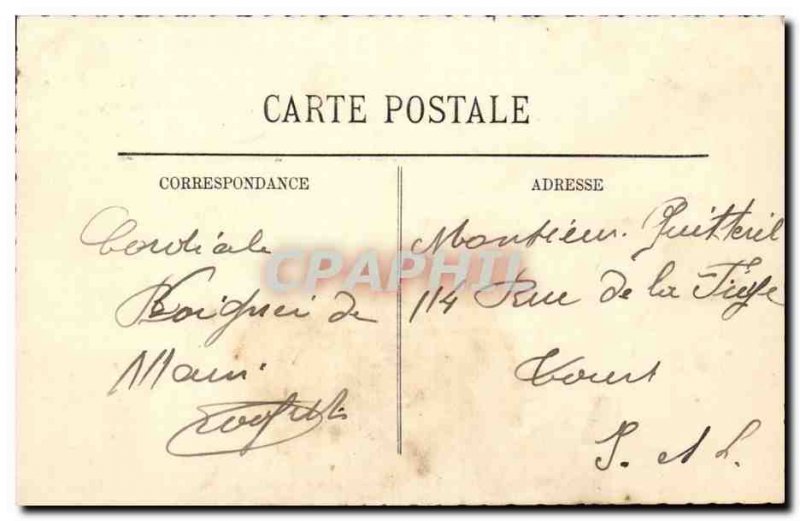 CARTE POSTALE
CORRESPONDANCE
Cordiale
Poignée de
Main
ADRESSE
Monsieur
114 Rue de la
Tours
I. et L.
CPAPHIL